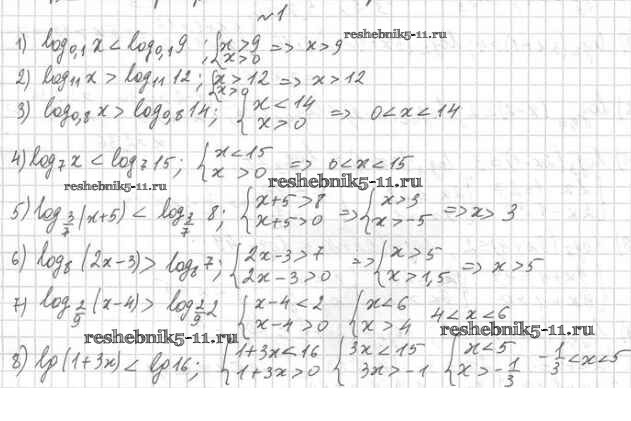 №1
reshebnik5-11.ru
1) log₀,₁x < log₀,₁9 ; {x>9 x>0 => x>9
2) log₁₁x > log₁₁12 ; {x>12 x>0 => x>12
3) log₀,₈x > log₀,₈14; {x<14 x>0 => 0<x<14
4) log₇x < log₇15; {x<15 x>0 => 0<x<15
reshebnik5-11.ru reshebnik5-11.ru
5) log_{3/7}(x+5) < log_{3/7}8; {x+5>8 x+5>0 => {x>3 x>-5 => x>3
6) log₈(2x-3) > log₈7; {2x-3>7 2x-3>0 => {x>5 x>1,5 => x>5
7) log_{2/9}(x-4) > log_{2/9}2 {x-4<2 x-4>0 {x<6 x>4 4<x<6
reshebnik5-11.ru reshebnik5-11.ru
8) lg(1+3x) < lg16; {1+3x<16 1+3x>0 {3x<15 3x>-1 {x<5 x>-1/3 -1/3<x<5